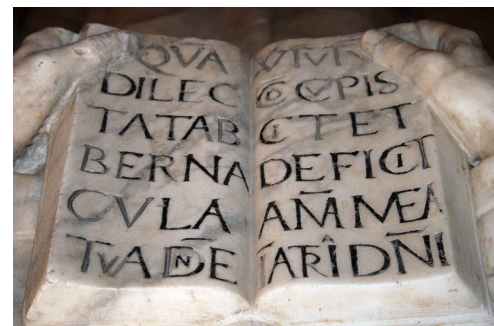 QVA
DILEC
TATAB
BERNA
CVLA
TVA DN̄E
COCVPIS
CIT ET
DEFICIT
AM̄ MEA
ĪARÎ DN̄I